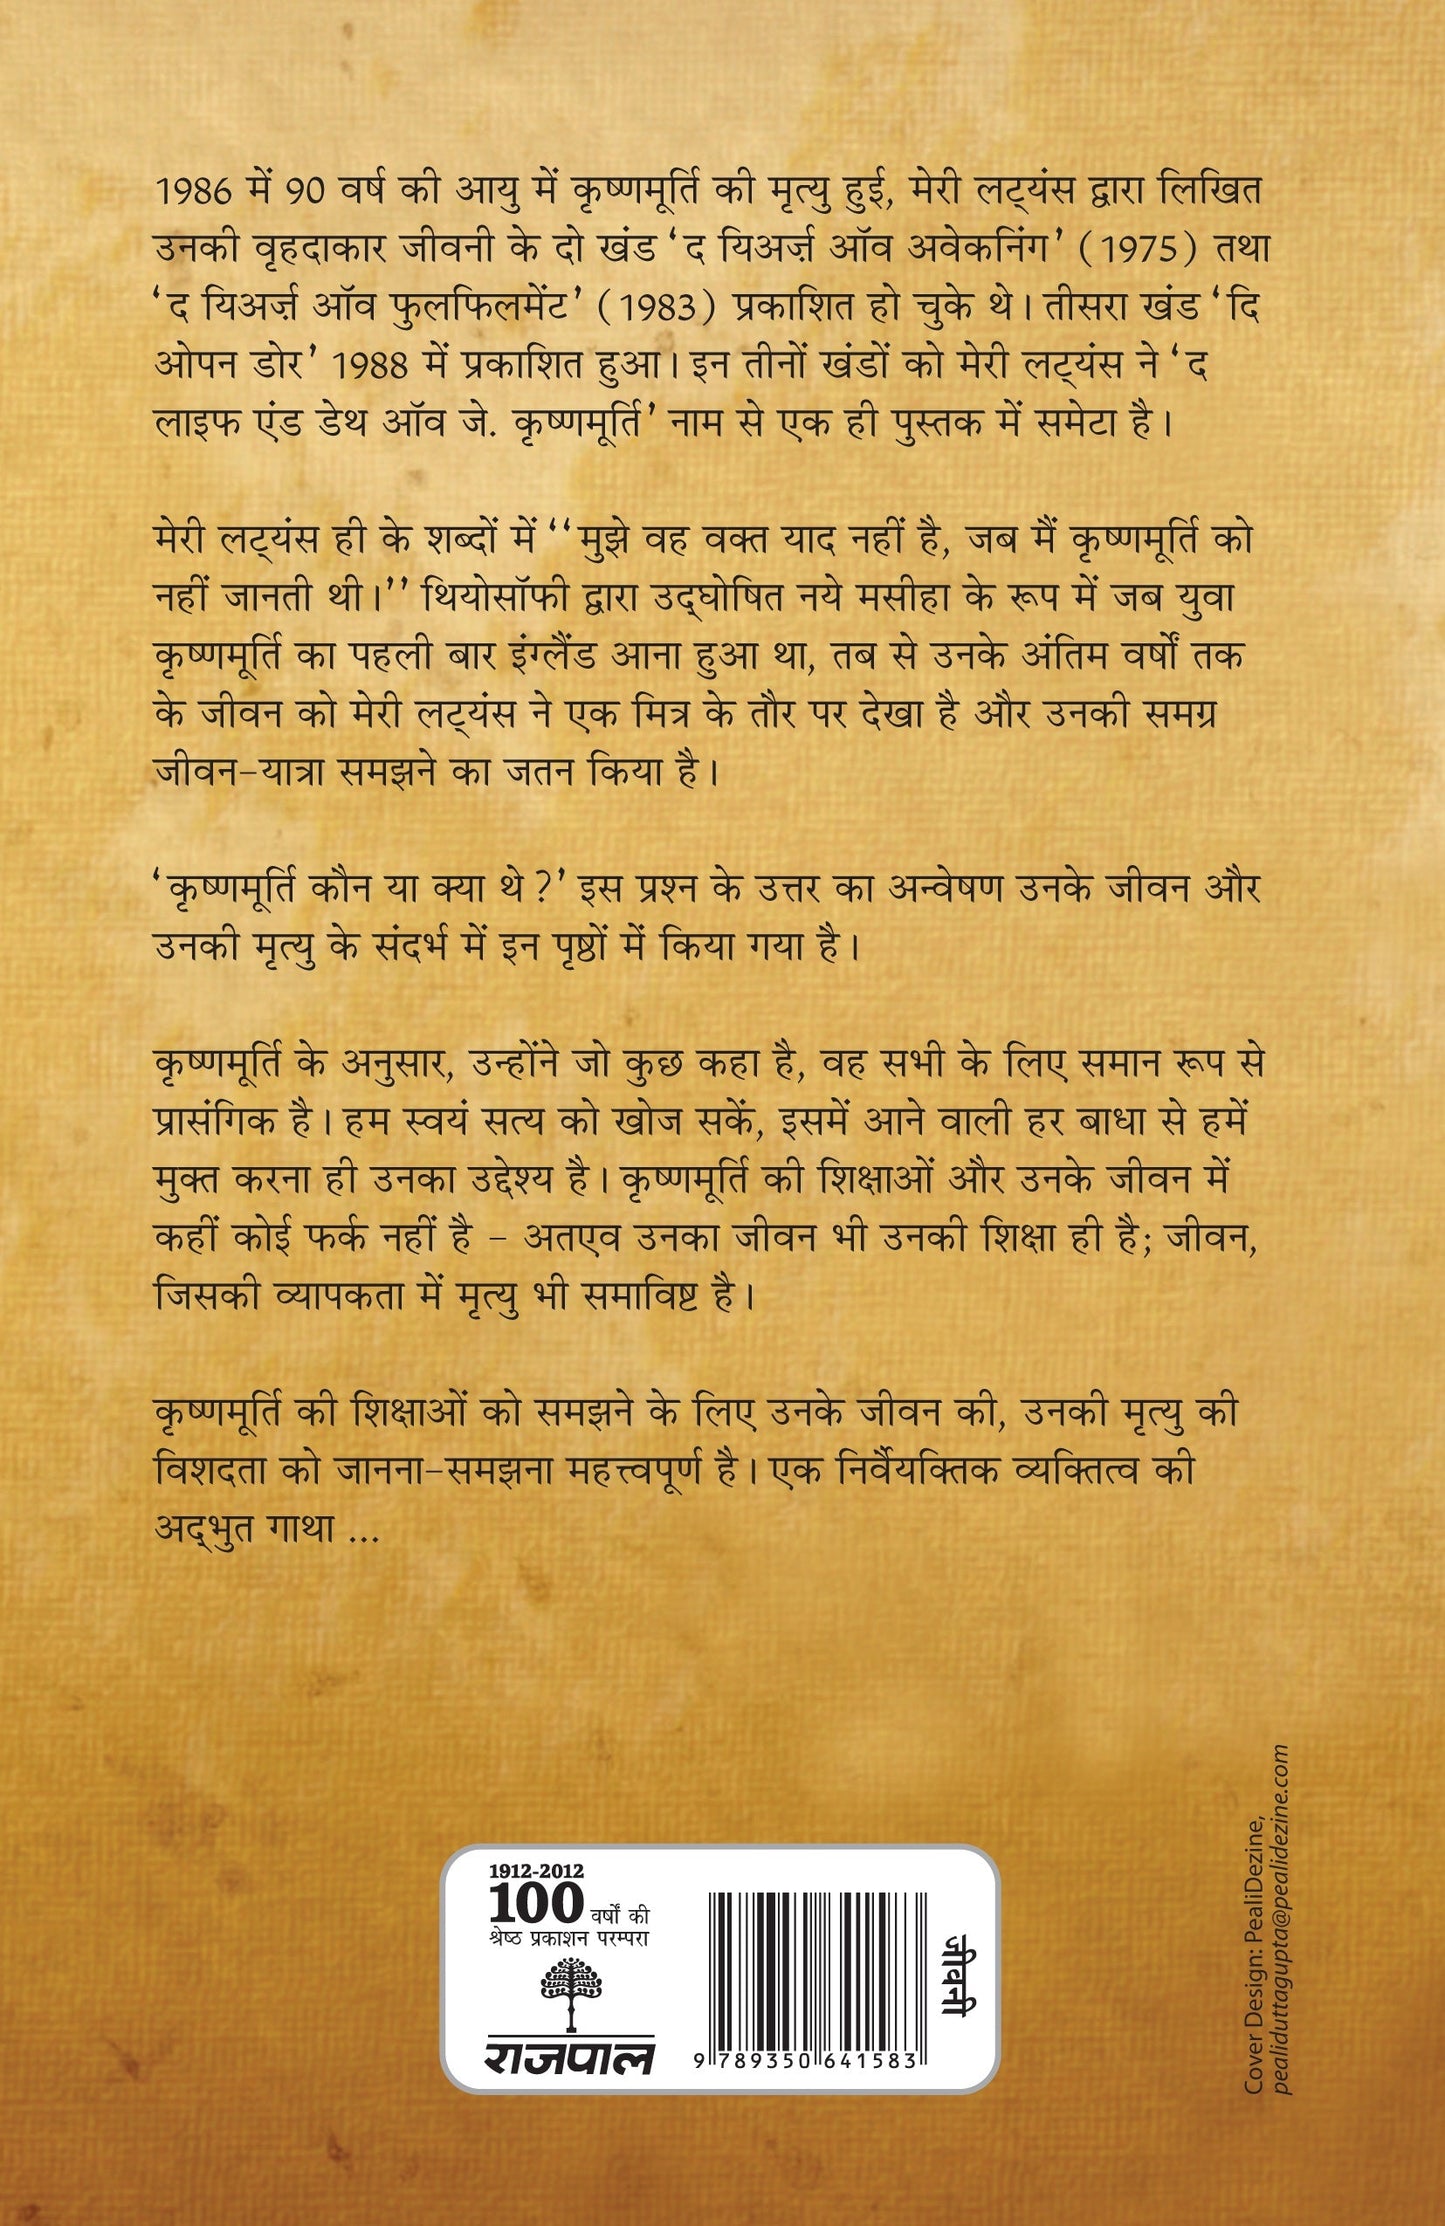 1986 में 90 वर्ष की आयु में कृष्णमूर्ति की मृत्यु हुई, मेरी लट्यंस द्वारा लिखित
उनकी वृहदाकार जीवनी के दो खंड ‘द यिअर्ज़ ऑव अवेकनिंग’ (1975) तथा
‘द यिअर्ज़ ऑव फुलफिलमेंट’ (1983) प्रकाशित हो चुके थे। तीसरा खंड ‘दि
ओपन डोर’ 1988 में प्रकाशित हुआ। इन तीनों खंडों को मेरी लट्यंस ने ‘द
लाइफ एंड डेथ ऑव जे. कृष्णमूर्ति’ नाम से एक ही पुस्तक में समेटा है।
मेरी लट्यंस ही के शब्दों में ‘‘मुझे वह वक्त याद नहीं है, जब मैं कृष्णमूर्ति को
नहीं जानती थी।’’ थियोसॉफी द्वारा उद्घोषित नये मसीहा के रूप में जब युवा
कृष्णमूर्ति का पहली बार इंग्लैंड आना हुआ था, तब से उनके अंतिम वर्षों तक
के जीवन को मेरी लट्यंस ने एक मित्र के तौर पर देखा है और उनकी समग्र
जीवन-यात्रा समझने का जतन किया है।
‘कृष्णमूर्ति कौन या क्या थे?’ इस प्रश्न के उत्तर का अन्वेषण उनके जीवन और
उनकी मृत्यु के संदर्भ में इन पृष्ठों में किया गया है।
कृष्णमूर्ति के अनुसार, उन्होंने जो कुछ कहा है, वह सभी के लिए समान रूप से
प्रासंगिक है। हम स्वयं सत्य को खोज सकें, इसमें आने वाली हर बाधा से हमें
मुक्त करना ही उनका उद्देश्य है। कृष्णमूर्ति की शिक्षाओं और उनके जीवन में
कहीं कोई फर्क नहीं है - अतएव उनका जीवन भी उनकी शिक्षा ही है; जीवन,
जिसकी व्यापकता में मृत्यु भी समाविष्ट है।
कृष्णमूर्ति की शिक्षाओं को समझने के लिए उनके जीवन की, उनकी मृत्यु की
विशदता को जानना-समझना महत्त्वपूर्ण है। एक निर्वैयक्तिक व्यक्तित्व की
अद्भुत गाथा ...
1912-2012
100 वर्षों की
श्रेष्ठ प्रकाशन परम्परा
राजपाल
9 789350 641583
जीवनी
Cover Design: PealiDezine,
pealiduttagupta@pealidezine.com